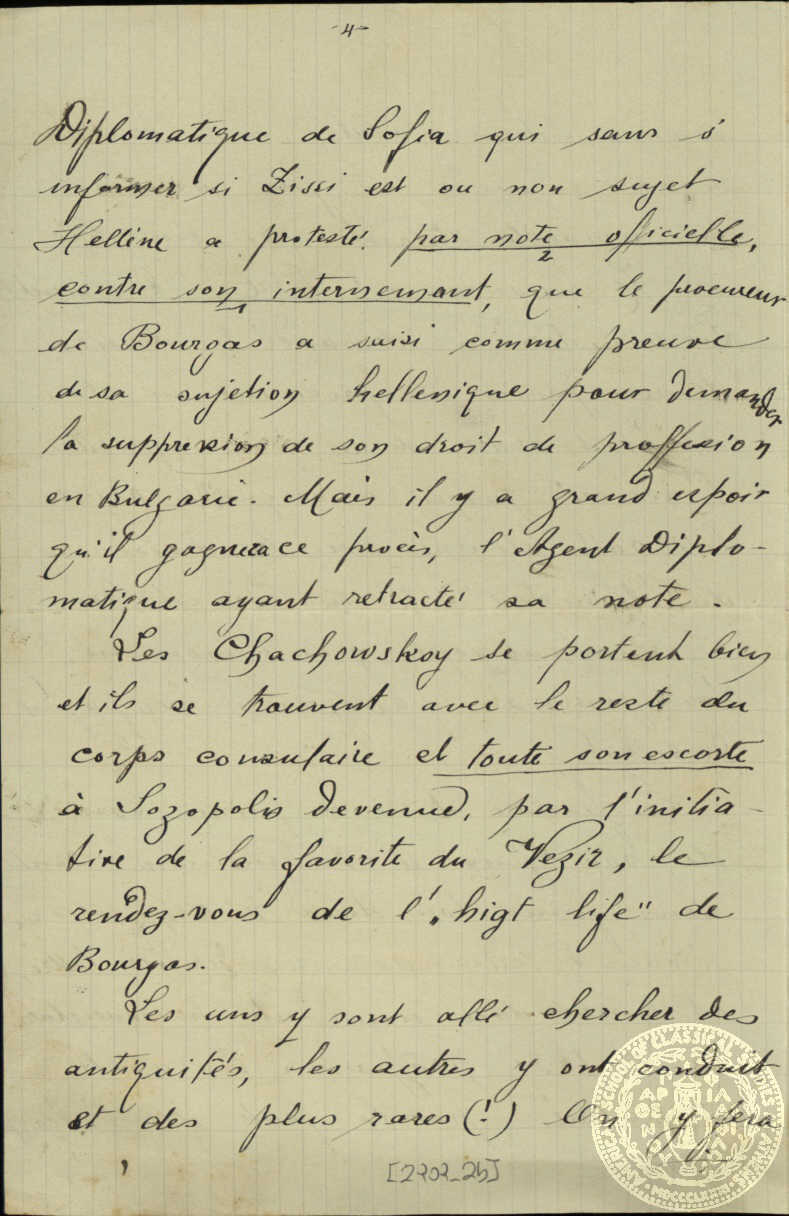 -4-
Diplomatique de Sofia qui sans s'
informer si Zissi est ou non sujet
Hellène a protesté par note officielle,
2
contre son internemant, que le procureur
1
de Bourgas a saisi comme preuve
de sa sujetion hellenique pour demander
la suppression de son droit de proffession
en Bulgarie. Mais il y a grand espoir
qu'il gagnera ce procès, l'Agent Diplo-
matique ayant retracté sa note.
Les Chachowskoy se portent bien
et ils se trouvent avec le reste du
corps consulaire et toute son escorte
à Sozopolis devenue, par l'initia-
tive de la favorite du Vezir, le
rendez-vous de l'„higt life" de
Bourgas.
Les uns y sont allé chercher des
antiquités, les autres y ont conduit
et des plus rares (!) On y fera
[2702_2b]
AMERICAN SCHOOL OF CLASSICAL STUDIES
ΠΑΡΘΕΝΟΥ ΦΙΛΙΑ
MDCCCLXXXI